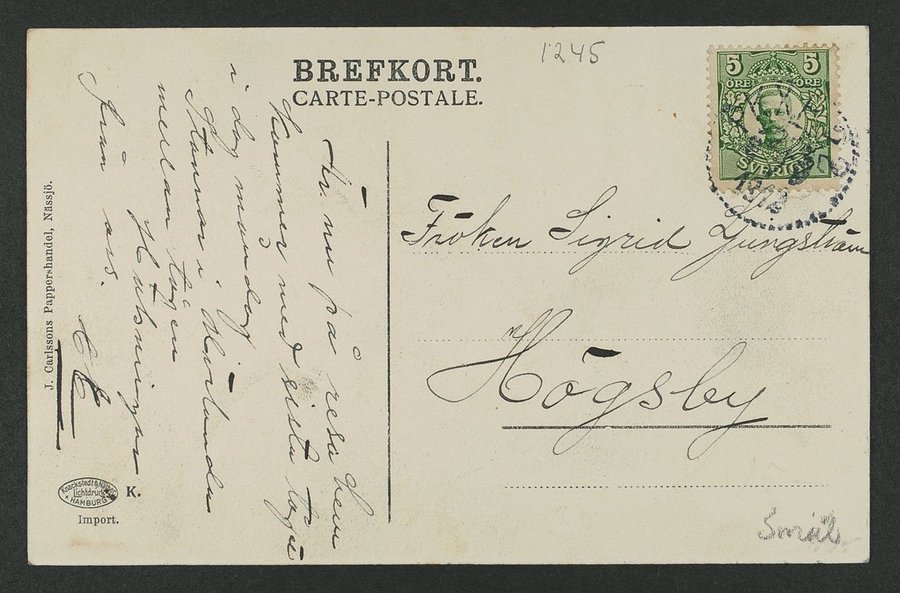 1245
BREFKORT.
CARTE-POSTALE.
5 5
ÖRE ÖRE
SVERIGE
1912
Är nu på resa hem
Kommer med sista tåg
i dag måndag
Stannar i
mellan tågen
Hälsningar
från oss.
Fröken Sigrid Ljungström
Högsby
J. Carlssons Pappershandel, Nässjö.
Knackstedt & Näther
Lichtdruck
HAMBURG
K.
Import.